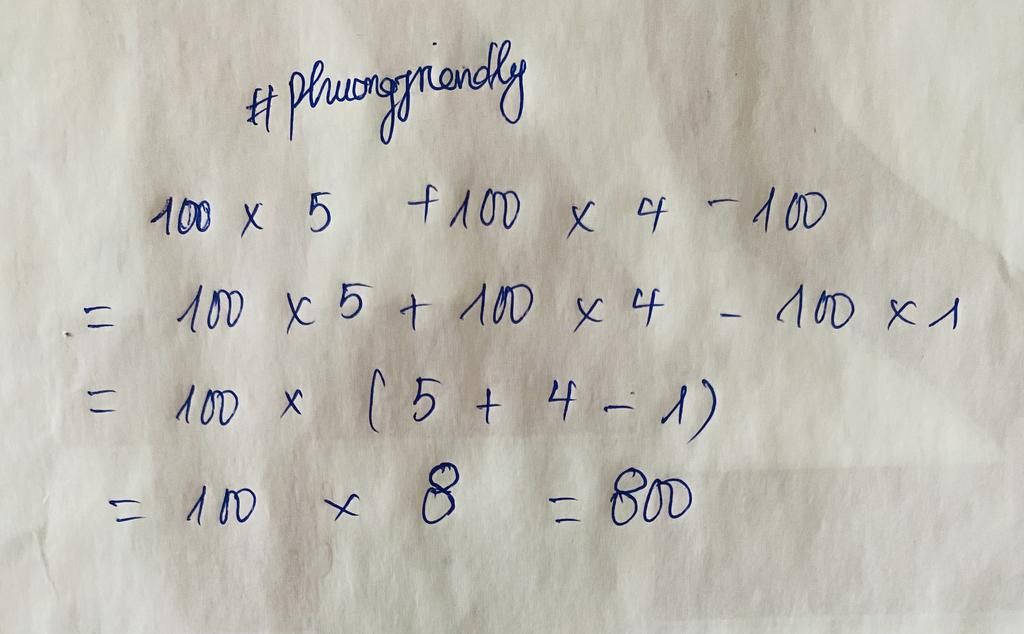 #phuongfriendly
100 × 5 + 100 × 4 - 100
= 100 × 5 + 100 × 4 - 100 × 1
= 100 × (5 + 4 - 1)
= 100 × 8 = 800